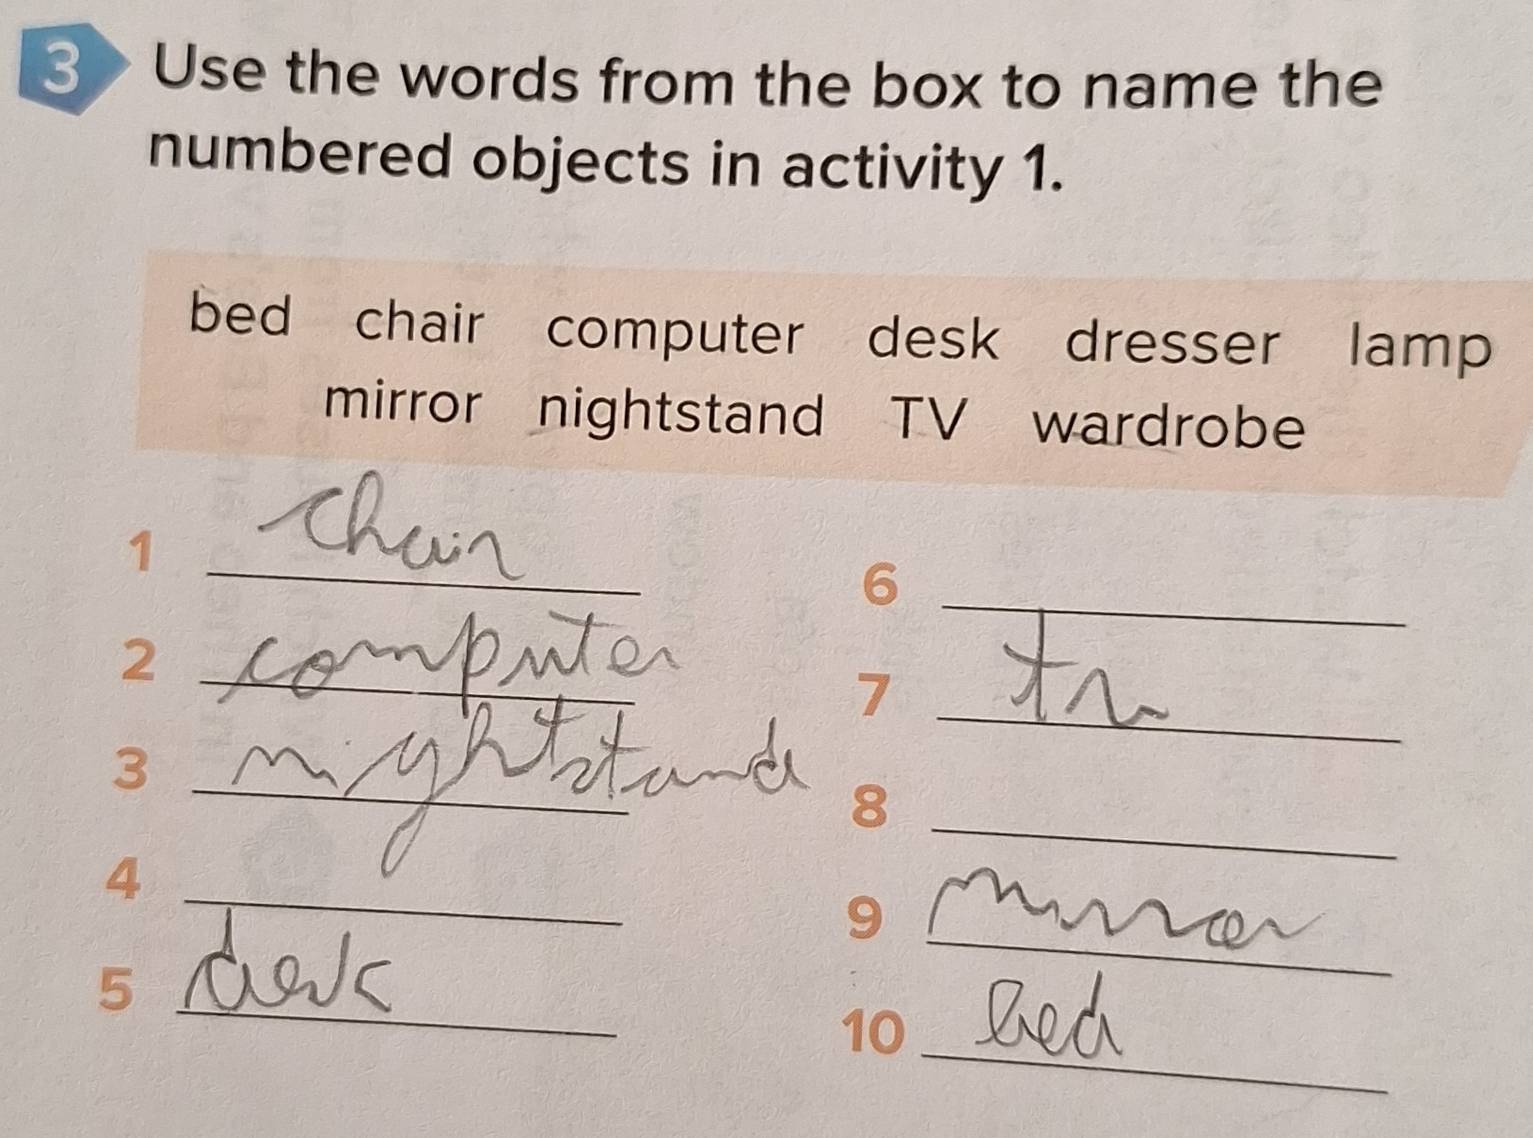 3 Use the words from the box to name the
numbered objects in activity 1.
bed chair computer desk dresser lamp
mirror nightstand TV wardrobe
1 chair
2 computer
3 nightstand
4
5 desk
6
7 tv
8
9 mirror
10 bed